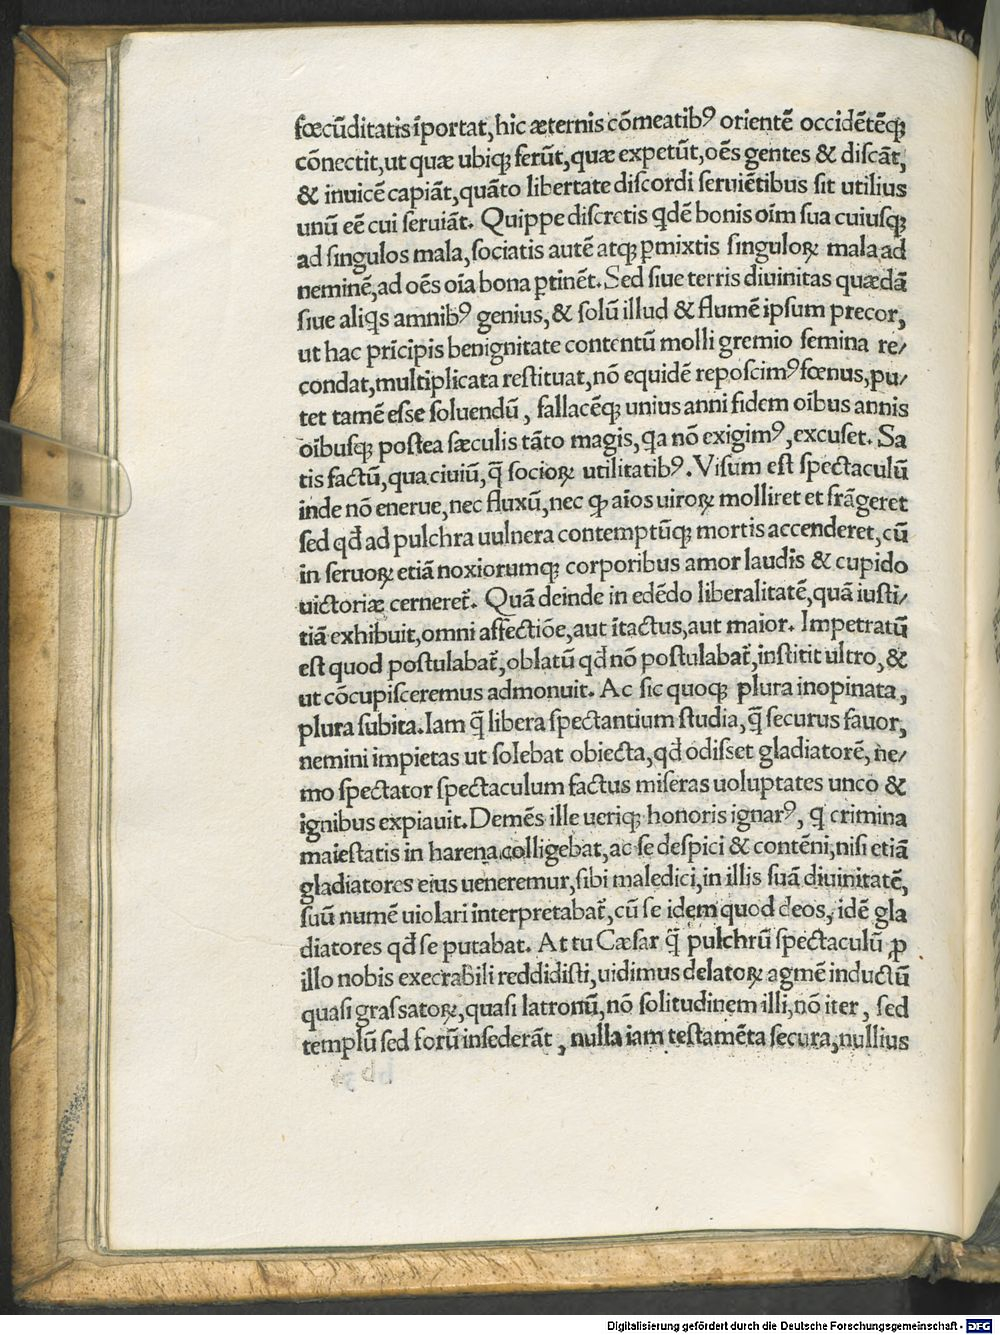 fœcūditatis īportat, hic æternis cōmeatibꝰ orientē occidētēqꝫ
cōnectit, ut quæ ubiqꝫ ferūt, quæ expetūt, oēs gentes & diſcāt,
& inuicē capiāt, quāto libertate diſcordi ſeruiētibus ſit utilius
unū eē cui ſeruiāt. Quippe diſcretis qdē bonis oīm ſua cuiuſqꝫ
ad ſingulos mala, ſociatis autē atqꝫ ꝑmixtis ſinguloꝝ mala ad
neminē, ad oēs oīa bona ꝑtinēt. Sed ſiue terris diuinitas quædā
ſiue aliqs amnibꝰ genius, & ſolū illud & flumē ipſum precor,
ut hac prīcipis benignitate contentū molli gremio ſemina re/
condat, multiplicata reſtituat, nō equidē repoſcimꝰ fœnus, pu/
tet tamē eſſe ſoluendū, fallacēqꝫ unius anni fidem oībus annis
oībuſqꝫ poſtea ſæculis tāto magis, qa nō exigimꝰ, excuſet. Sa
tis factū, qua ciuiū, q̄ ſocioꝝ utilitatibꝰ. Viſum eſt ſpectaculū
inde nō enerue, nec fluxū, nec qꝫ aīos uiroꝝ molliret et frāgeret
ſed qđ ad pulchra uulnera contemptūqꝫ mortis accenderet, cū
in ſeruoꝝ etiā noxiorumqꝫ corporibus amor laudis & cupido
uictoriæ cerneret̄. Quā deinde in edēdo liberalitatē, quā iuſti/
tiā exhibuit, omni affectiōe, aut ītactus, aut maior. Impetratū
eſt quod poſtulabat̄, oblatū qđ nō poſtulabat̄, inſtitit ultro, &
ut cōcupiſceremus admonuit. Ac ſic quoqꝫ plura inopinata,
plura ſubita. Iam q̄ libera ſpectantium ſtudia, q̄ ſecurus fauor,
nemini impietas ut ſolebat obiecta, qđ odiſſet gladiatorē, ne/
mo ſpectator ſpectaculum factus miſeras uoluptates unco &
ignibus expiauit. Demēs ille ueriqꝫ honoris ignarꝰ, q̄ crimina
maieſtatis in harena colligebat, ac ſe deſpici & contēni, niſi etiā
gladiatores eius ueneremur, ſibi maledici, in illis ſuā diuinitatē,
ſuū numē uiolari interpretabat̄, cū ſe idem quod deos, idē gla
diatores qđ ſe putabat. At tu Cæſar q̄ pulchrū ſpectaculū ꝓ
illo nobis execrabili reddidiſti, uidimus delatoꝝ agmē inductū
quaſi graſſatoꝝ, quaſi latronū, nō ſolitudinem illi, nō iter, ſed
templū ſed forū inſederāt, nulla iam teſtamēta ſecura, nullius
Digitalisierung gefördert durch die Deutsche Forschungsgemeinschaft - DFG